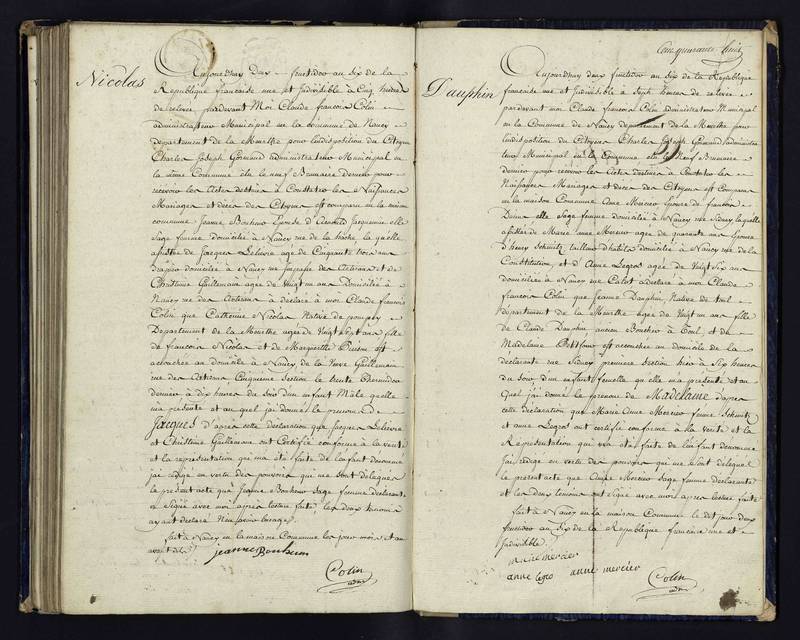 Nicolas
Aujourdhuy Deux fructidor an Six de la
République française une et Indivisible à Cinq heures
de relevée, pardevant Moi Claude françois Colin
administrateur Municipal en la commune de Nancy
département de la Meurthe pour lindisposition du Citoyen
Charles Joseph administrateur Municipal en
la même Commune élu le neuf Brumaire Dernier pour
recevoir les Actes destinés à Constater les Naissances
Mariages et décès des Citoyens est comparue en la maison
commune Jeanne Bonheur Epouse d' Jacquemin elle
Sage femme domiciliée à Nancy rue de la hache, la quelle
assistée de Jacques Lelievre agé de Cinquante trois ans
domicilié à Nancy rue des et de
Christinne Guillemain agée de Vingt un ans Domiciliée à
Nancy rue des à déclaré à moi Claude françois
Colin que Catherine Nicolas Native de pompey
Département de la Meurthe agée de Vingt Sept ans fille
de francois Nicolas et de Marguerithe est
accouchée au domicile à Nancy de la Veuve Guillemain
rue des Cinquieme Section le trente thermidor
dernier à dix heures du Soir d'un enfant Mâle quelle
ma présenté et au quel jai donné le prenom de
Jacques d'après cette déclaration que Jacques Lelievre
et Christinne Guillemain ont Certifié conforme à la verité
et la représentation qui ma été faite de lenfant denommé
jai rédigé en vertu des pouvoirs qui me sont délégués
le présent acte que Jeanne Bonheur Sage femme déclarante
a Signé avec moi après lecture faite, les deux temoins
ayant déclaré
fait à Nancy en la maison Commune les jour mois et an
avant dits
jeanne Bonheur
Colin
adm
Cent quarante huit
Dauphin
Aujourdhuy deux fructidor an Six de la République
française une et Indivisible à Sept heures de relevée
pardevant moi Claude françois Colin administrateur Municipal
en la Commune de Nancy departement de la Meurthe pour
lindisposition du Citoyen Charles Joseph administra-
teur Municipal en la Commune élu le Neuf Brumaire
dernier pour recevoir les Actes destinés à Constater les
Naissances Mariages et décès des Citoyens est Comparue
en la maison Commune Anne Mercier Epouse de francois
elle Sage femme domiciliée à Nancy rue Sidney laquelle
assistée de Marie Anne Mercier agée de quarante ans Epouse
d'henry Schmitz tailleur d'habits domiciliée à Nancy rue de la
Constitution, et d'Anne Legros agée de Vingt Six ans
domiciliée à Nancy rue Callot a déclaré à moi Claude
francois Colin que Jeanne Dauphin, Native de toul
département de la Meurthe agée de Vingt un ans fille
de Claude Dauphin ancien Boucher à toul, et de
Madelaine est accouchée au domicile de la
déclarante rue Sidney premiere section hier à Six heures
du soir d'un enfant femelle qu'elle ma présenté et au
Quel jai donné le prénom de Madelaine d'après
cette déclaration que Marie Anne Mercier femme Schmitz
et anne Legros ont certifié conforme à la verité et la
Représentation qui m'a été faite de l'enfant denommé
jai rédigé en vertu des pouvoirs qui me Sont délégués
le présent acte que Anne Mercier Sage femme déclarante
et les deux temoins ont Signé avec moi après lecture faite
fait à Nancy en la maison Commune le dit jour deux
fructidor an Six de la République française une et
Indivisible
mercier
anne legro anne mercier
Colin
adm